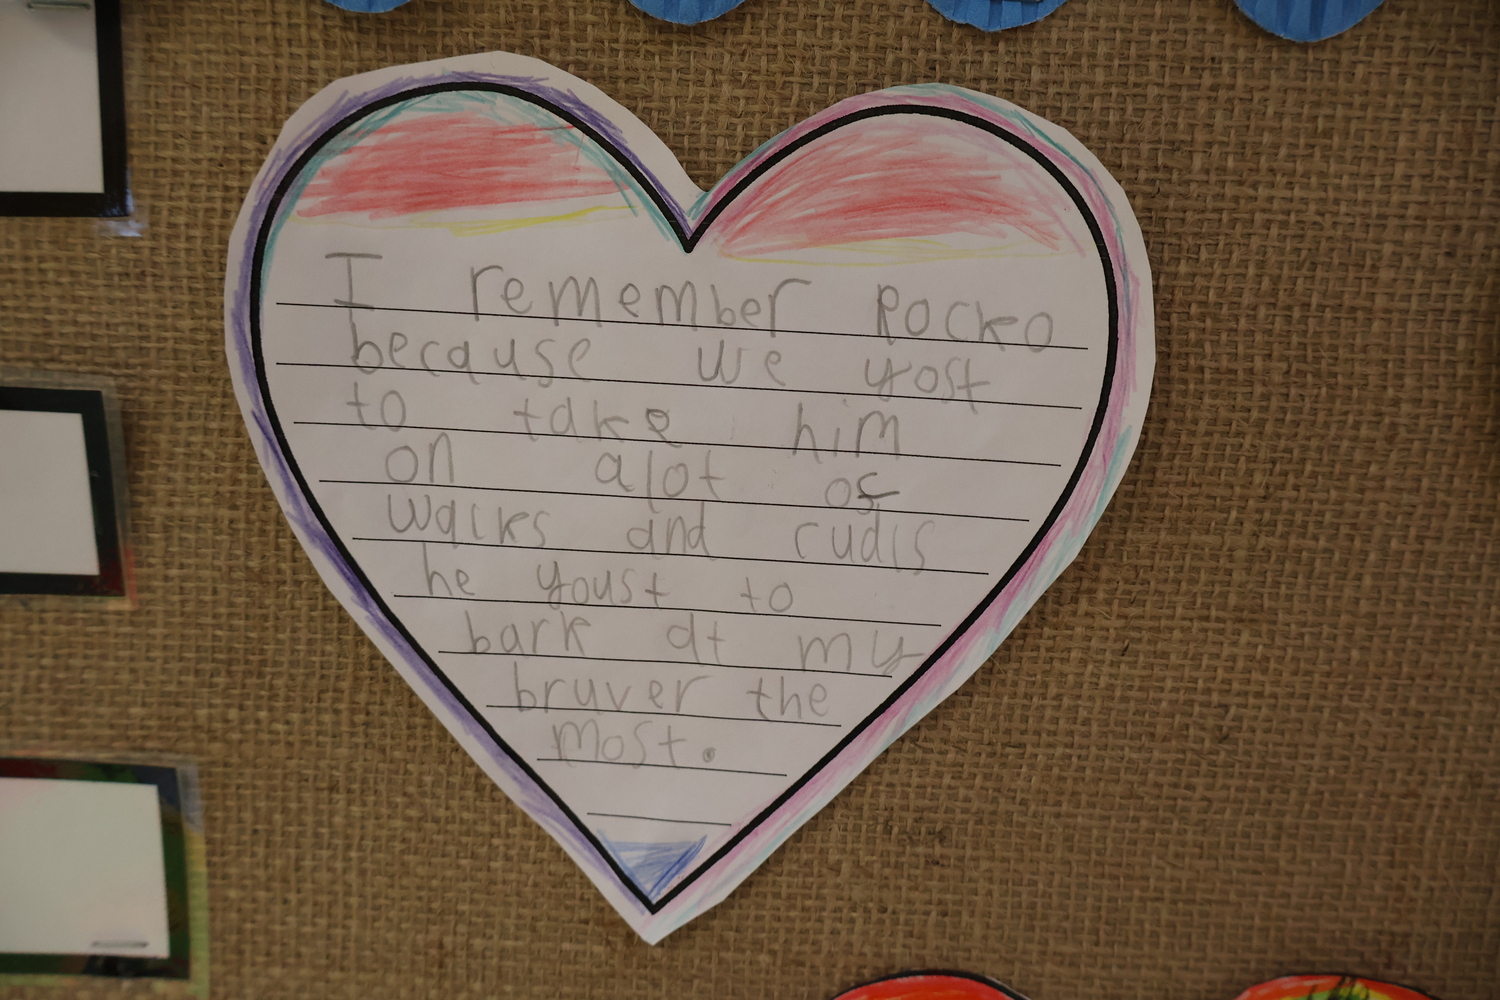 I remember Rocko
because we yost
to take him
on alot of
walks and cudls
he youst to
bark at my
bruver the
most.